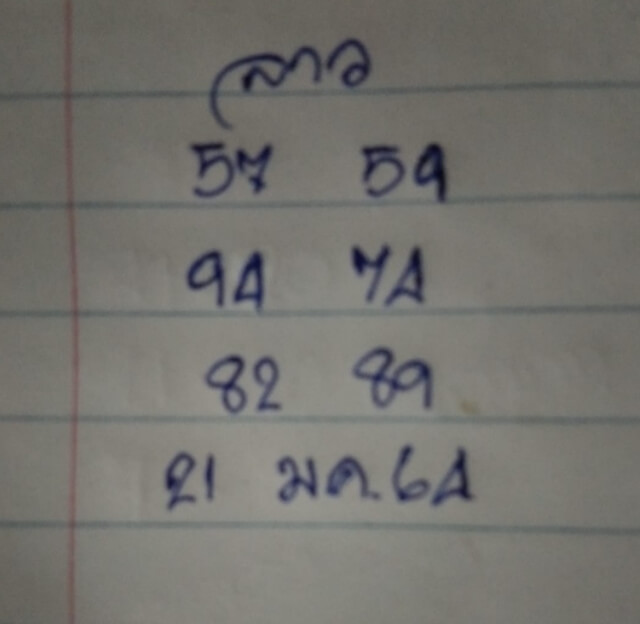 ลาว
57 59
94 74
82 89
21 มค.64